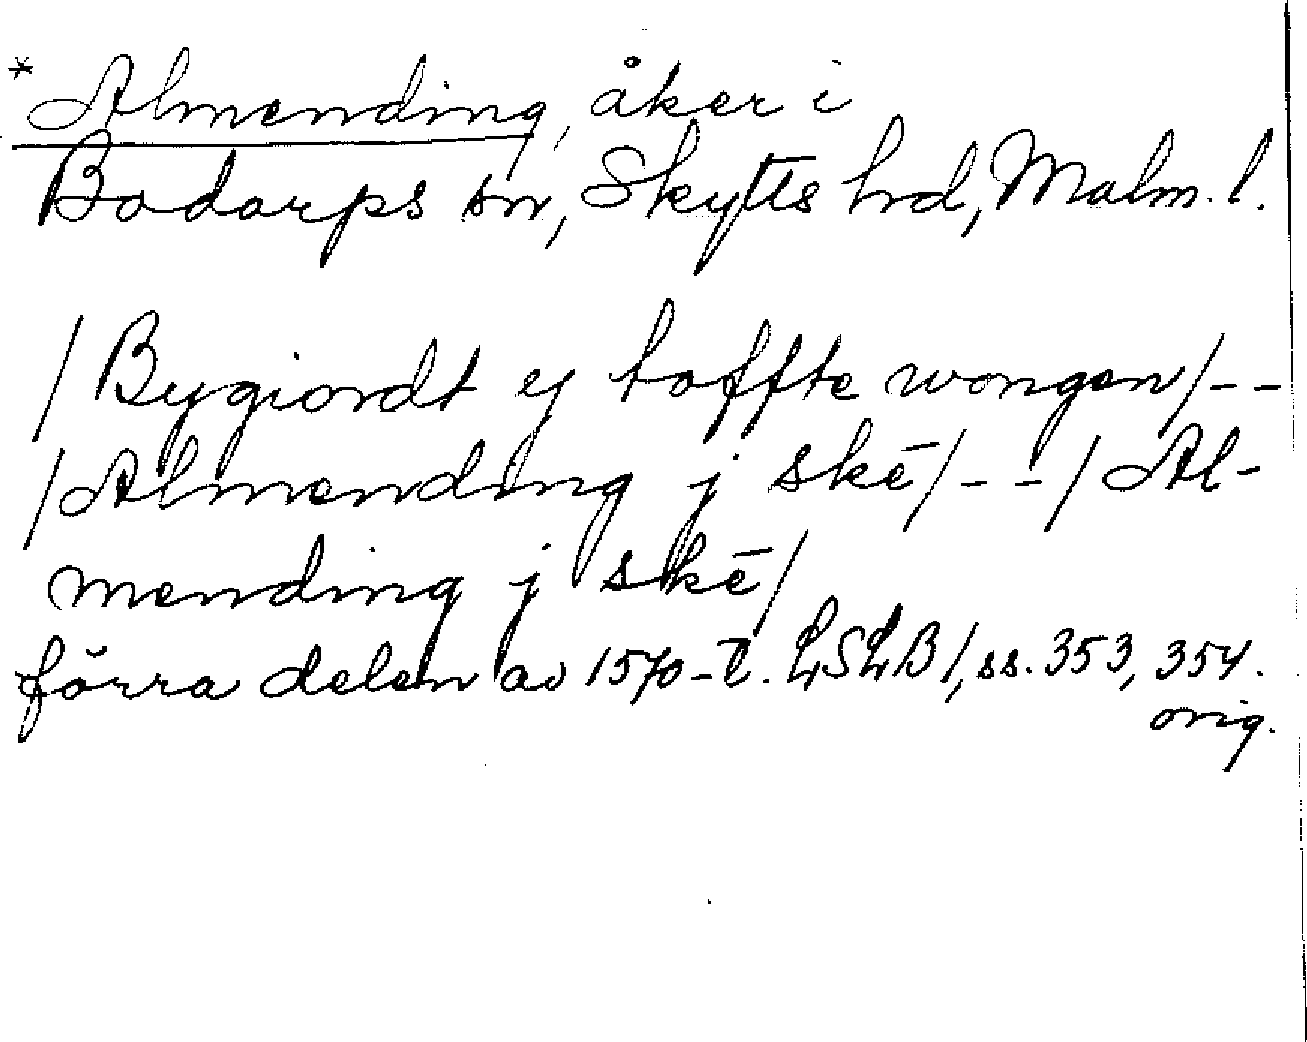 * Almending, åker i
Bodarps sn, Skytts hd, Malm. l.
/Bygiordt ej toffte wongen/--
/Almending j skē/--/Al-
mending j skē/
förra delen av 1570-t. LSLB 1, ss. 353, 354.
orig.